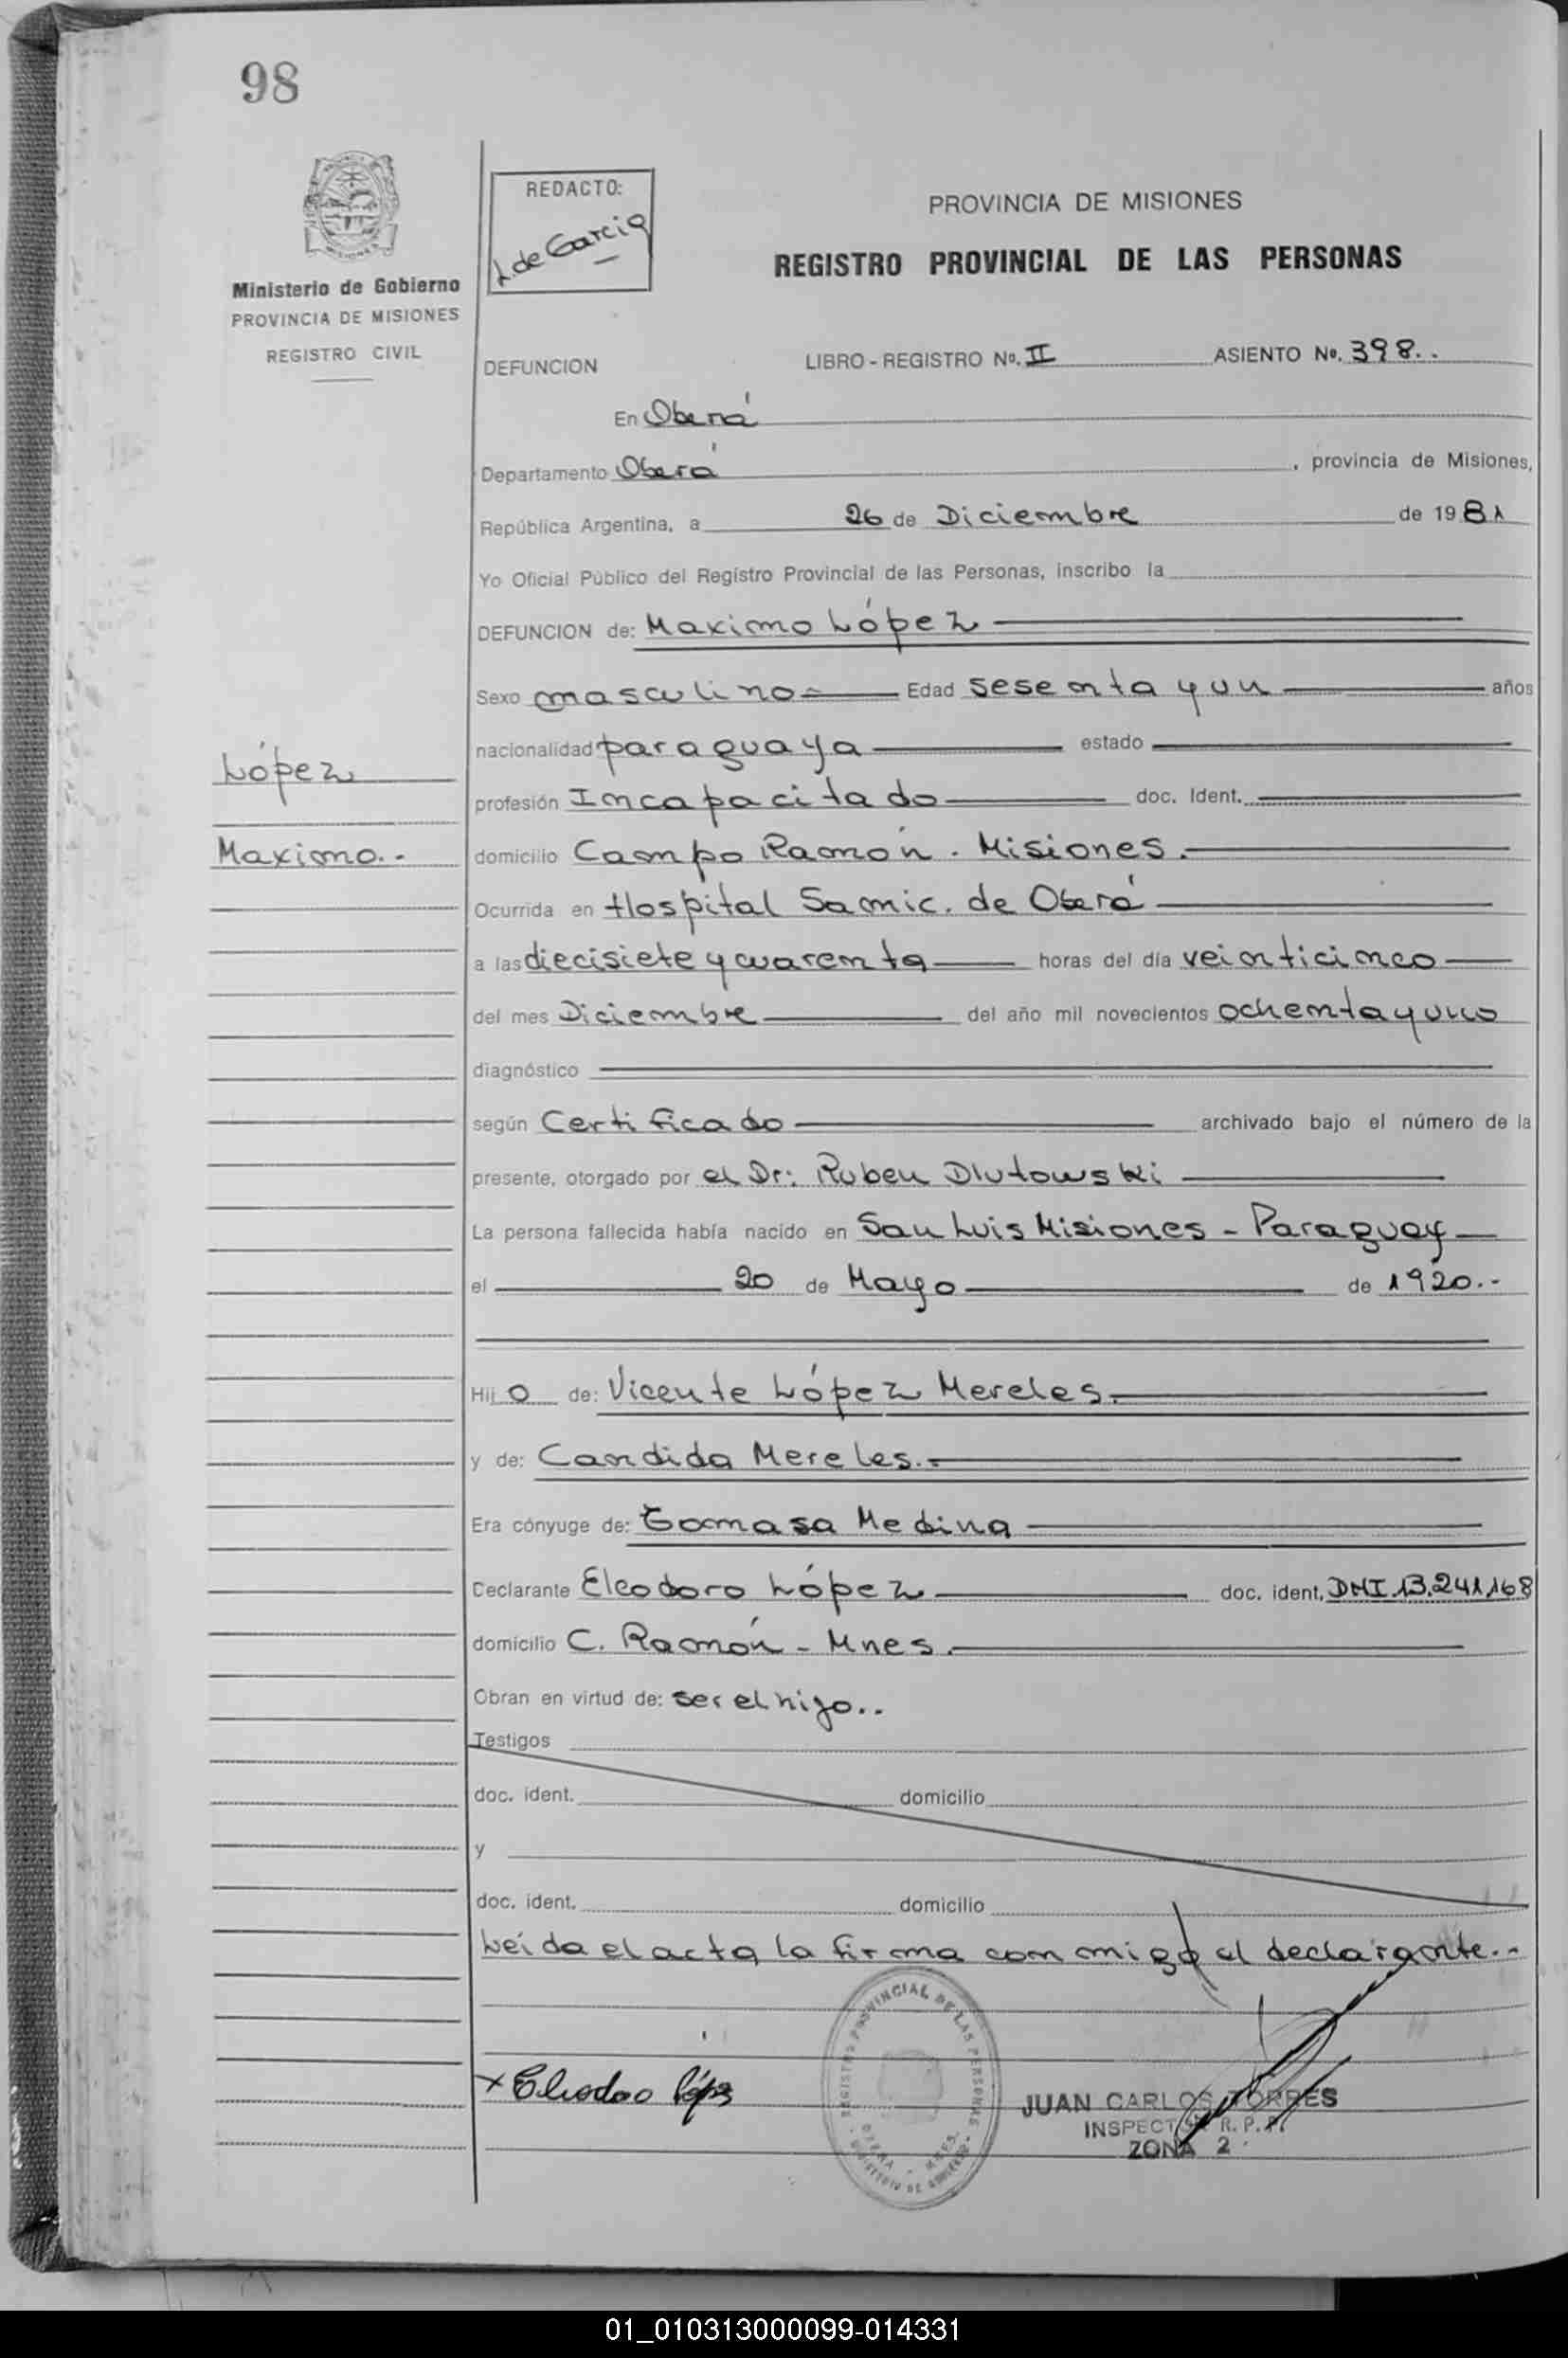 98
REDACTO:
L. de Garcia
MISIONES
Ministerio de Gobierno
PROVINCIA DE MISIONES
REGISTRO CIVIL
PROVINCIA DE MISIONES
REGISTRO PROVINCIAL DE LAS PERSONAS
DEFUNCION LIBRO - REGISTRO Nº. II ASIENTO Nº. 398..
En Oberá
Departamento Oberá , provincia de Misiones,
República Argentina, a 26 de Diciembre de 1981
Yo Oficial Público del Registro Provincial de las Personas, inscribo la
DEFUNCION de: Maximo López
Sexo masculino Edad sesenta y un años
nacionalidad paraguaya estado
López
profesión Incapacitado doc. Ident.
Maximo.-
domicilio Campo Ramón. Misiones.
Ocurrida en Hospital Samic. de Oberá
a las diecisiete y cuarenta horas del día veinticinco
del mes Diciembre del año mil novecientos ochenta y uno
diagnóstico
según Certificado archivado bajo el número de la
presente, otorgado por el Dr: Ruben Dlutowski
La persona fallecida había nacido en San Luis Misiones - Paraguay
el 20 de Mayo de 1920.-
Hijo de: Vicente López Mereles.
y de: Candida Mereles.-
Era cónyuge de: Tomasa Medina
Declarante Eleodoro López doc. ident. DNI.13.241.168
domicilio C. Ramón - Mnes.
Obran en virtud de: ser el hijo..
Testigos
doc. ident. domicilio
y
doc. ident. domicilio
Leída el acta la firma conmigo el declarante.-
REGISTRO PROVINCIAL DE LAS PERSONAS
x Eleodoro López
JUAN CARLOS TORRES
INSPECTOR R. P. P.
ZONA 2
01_010313000099-014331